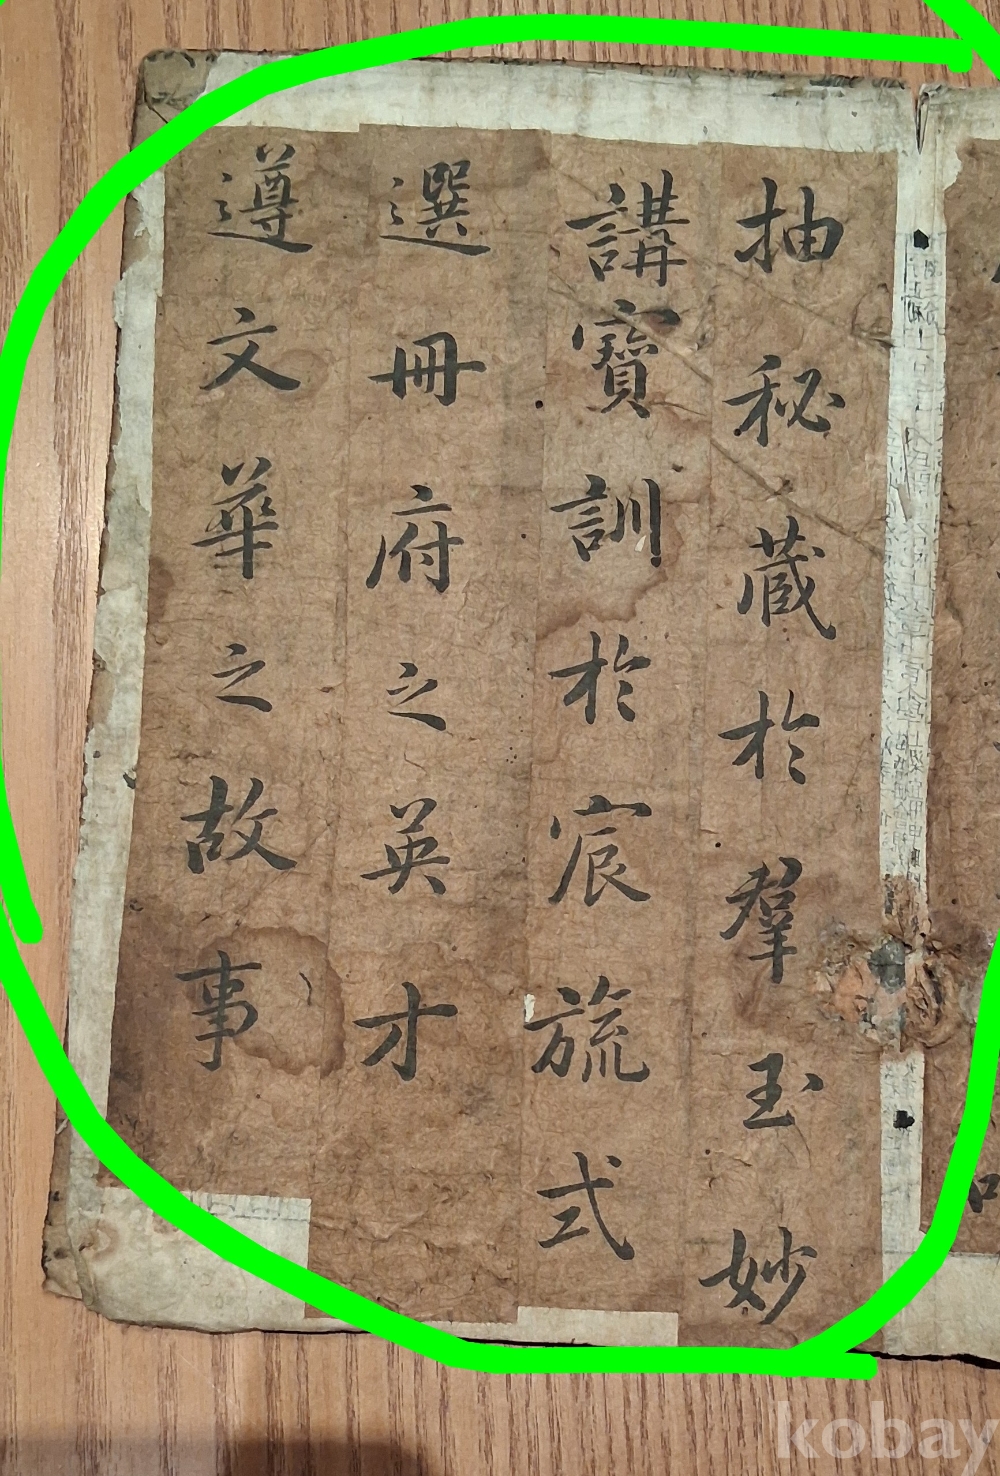 抽秘蔵於羣玉妙
講寶訓於宸旒式
選冊府之英才
遵文華之故事
kobay